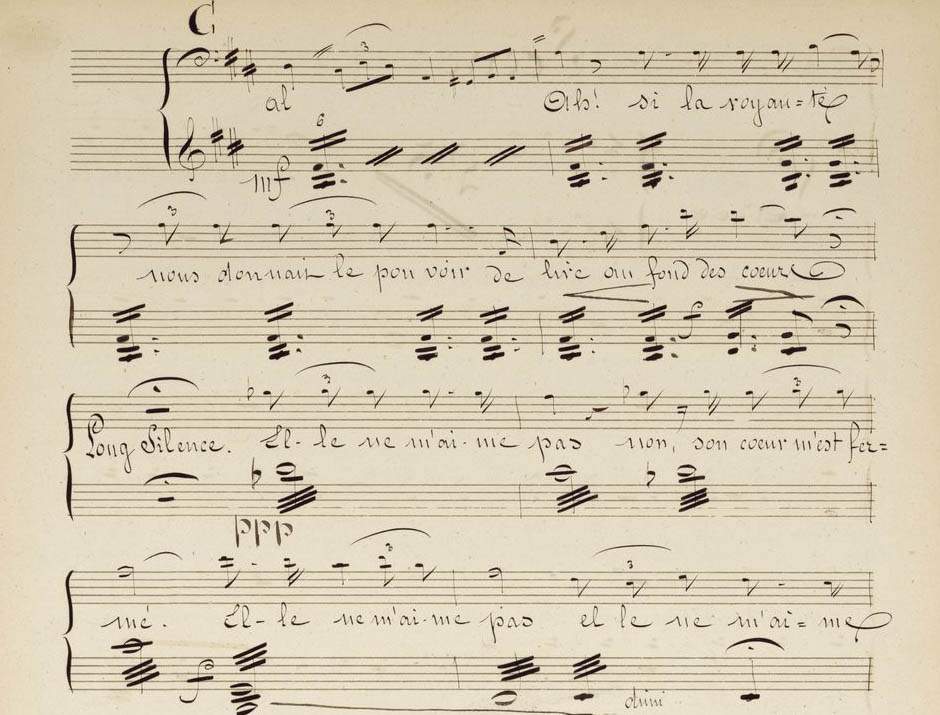 C
3
al Ah! si la royau=té
6
mf
3 3
nous donnait le pou voir de lire au fond des coeurs
f
3 3
Long Silence. El-le ne m'ai-me pas non, son coeur m'est fer=
ppp
3 3
mé. El-le ne m'ai-me pas el le ne m'ai=me
f dimi